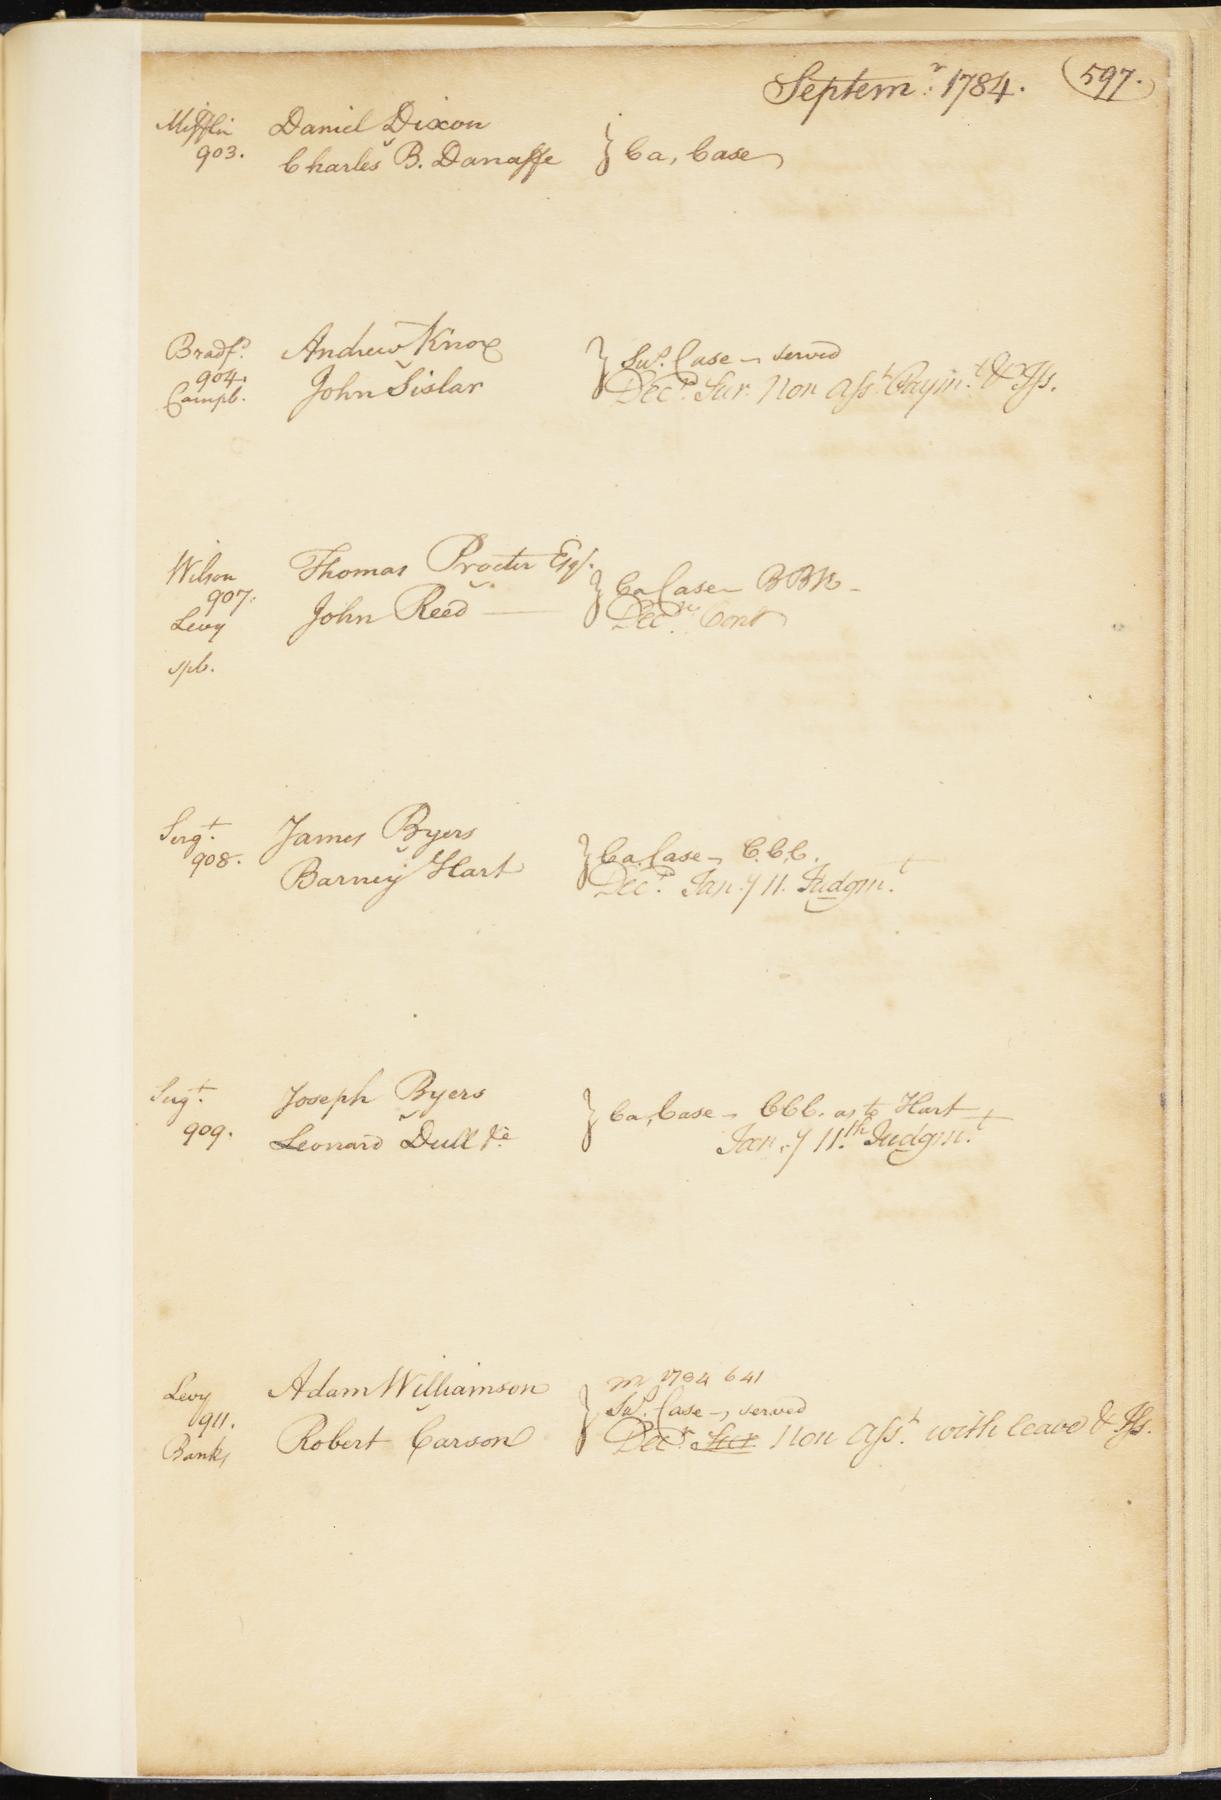 Septem.r 1784. 597.
Mifflin Daniel Dixon
903. v Charles B. Danasse } Ca, Case
Bradf.d Andrew Knox
904. v } Su.s Case – served
Campb. John Sislar Dec.r Sur. Non Ass.t Paym.t & Iss.
Wilson Thomas Procter Esq.r
907. v } Ca Case – BBR –
Levy John Reed — Dec.r Cont
spb.
Serg.t James Byers
908. v } Ca. Case – C.C.C.
Barney Hart Dec.r Jan.y 11. Judgm.t
Serg.t Joseph Byers
909. v } Ca, Case – CCC. as to Hart
Leonard Dull &c Jan.y 11.th Judgm.t
m 1784 641
Levy Adam Williamson
911. v } Su.s Case – served
Banks Robert Carson Dec.r Sur. Non Ass.t with leave & Iss.